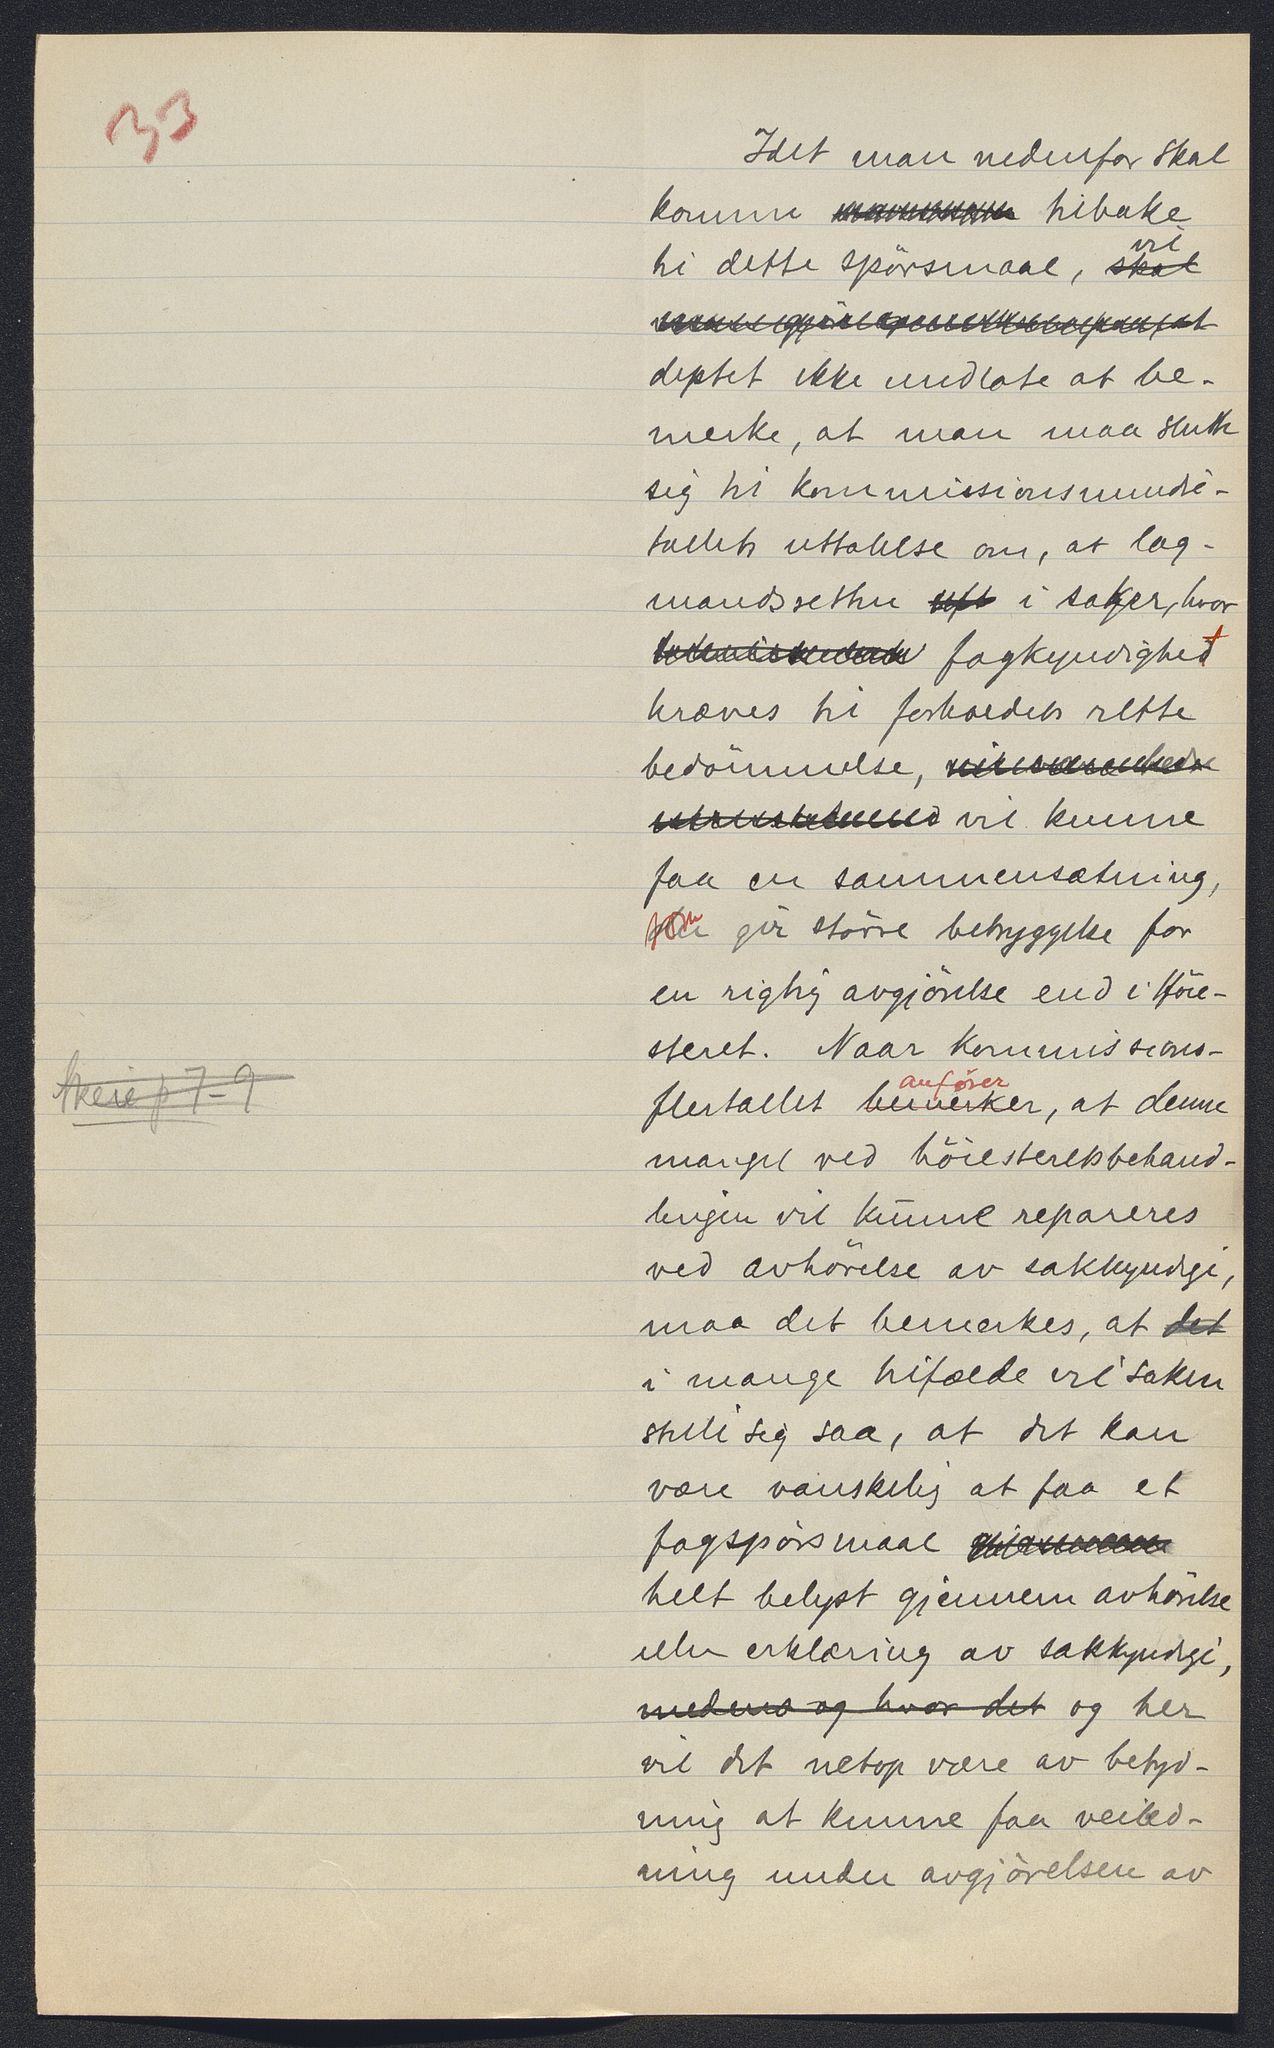 33
Idet man nedenfor skal
komme tilbake
til dette spörsmaal, skal vil
deptet ikke undlate at be-
merke, at man maa slutte
sig til kommissionsmindre-
tallets uttalelse om, at lag-
mandsretten i saker, hvor
fagkyndighet
kræves til forholdets rette
bedömmelse,
vil kunne
faa en sammensætning,
som gir större betryggelse for
en rigtig avgjörelse end i Höie-
steret. Naar kommissions-
flertallet bemerker anfører, at denne
mangel ved höiesteretsbehand-
lingen vil kunne repareres
ved avhörelse av sakkyndige,
maa det bemerkes, at det
i mange tilfælde vil saken
stille sig saa, at det kan
være vanskelig at faa et
fagspörsmaal
helt belyst gjennem avhörelse
eller erklæring av sakkyndige,
medens og hvor det og her
vil det netop være av betyd-
ning at kunne faa veiled-
ning under avgjörelsen av
Skeie p 7-9